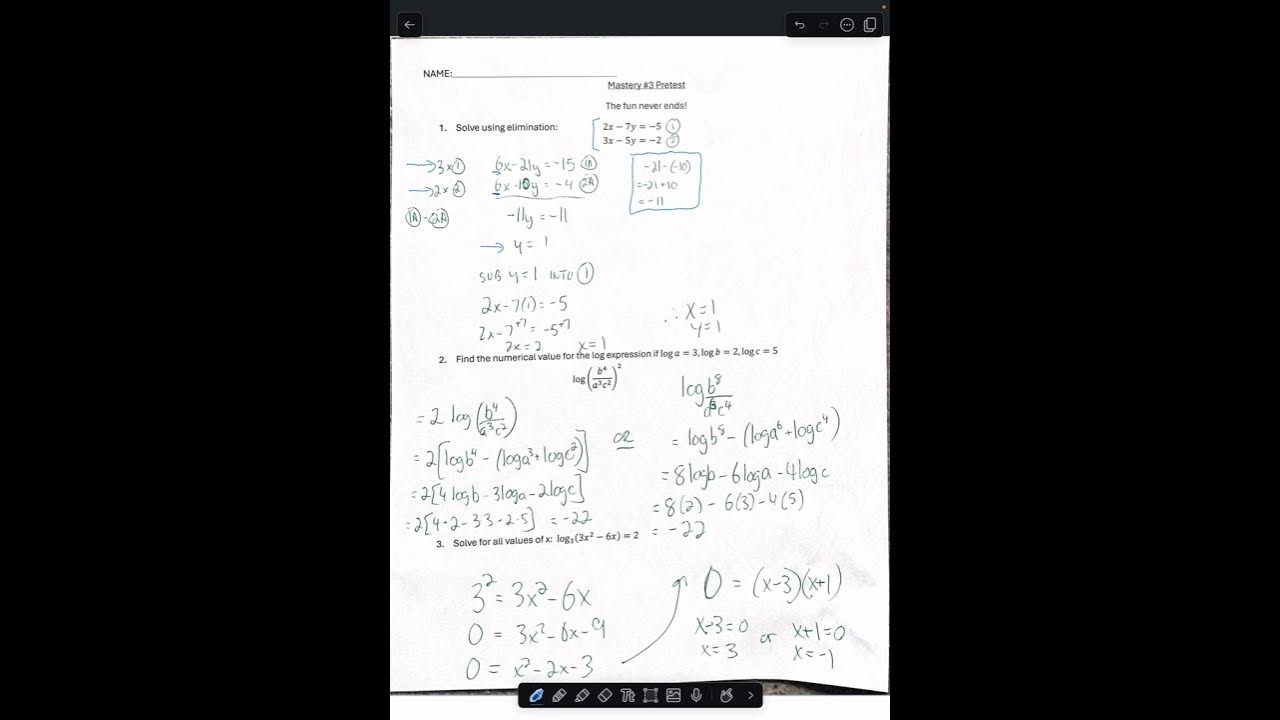 NAME:
Mastery #3 Pretest
The fun never ends!
1. Solve using elimination:
2x − 7y = −5 ①
3x − 5y = −2 ②
→ 3x① 6x-21y = -15 (1A)
→ 2x② 6x-10y = -4 (2A)
(1A)-(2A) -11y = -11
-21-(-10)
=-21+10
=-11
→ y = 1
SUB y=1 INTO ①
2x-7(1) = -5
2x-7+7 = -5+7
2x=2 x=1
∴ x=1
y=1
2. Find the numerical value for the log expression if log a = 3, log b = 2, log c = 5
log(b⁴/a³c²)²
= 2 log(b⁴/a³c²)
= 2[logb⁴ - (loga³+logc²)]
= 2[4logb-3loga-2logc]
= 2[4·2-3·3-2·5] = -22
OR
log b⁸/a⁶c⁴
= logb⁸ - (loga⁶+logc⁴)
= 8logb-6loga-4logc
= 8(2) - 6(3)-4(5)
= -22
3. Solve for all values of x: log₃(3x² − 6x) = 2
3² = 3x²-6x
0 = 3x²-6x-9
0 = x²-2x-3
0 = (x-3)(x+1)
x-3=0 or x+1=0
x=3 x=-1
Tt